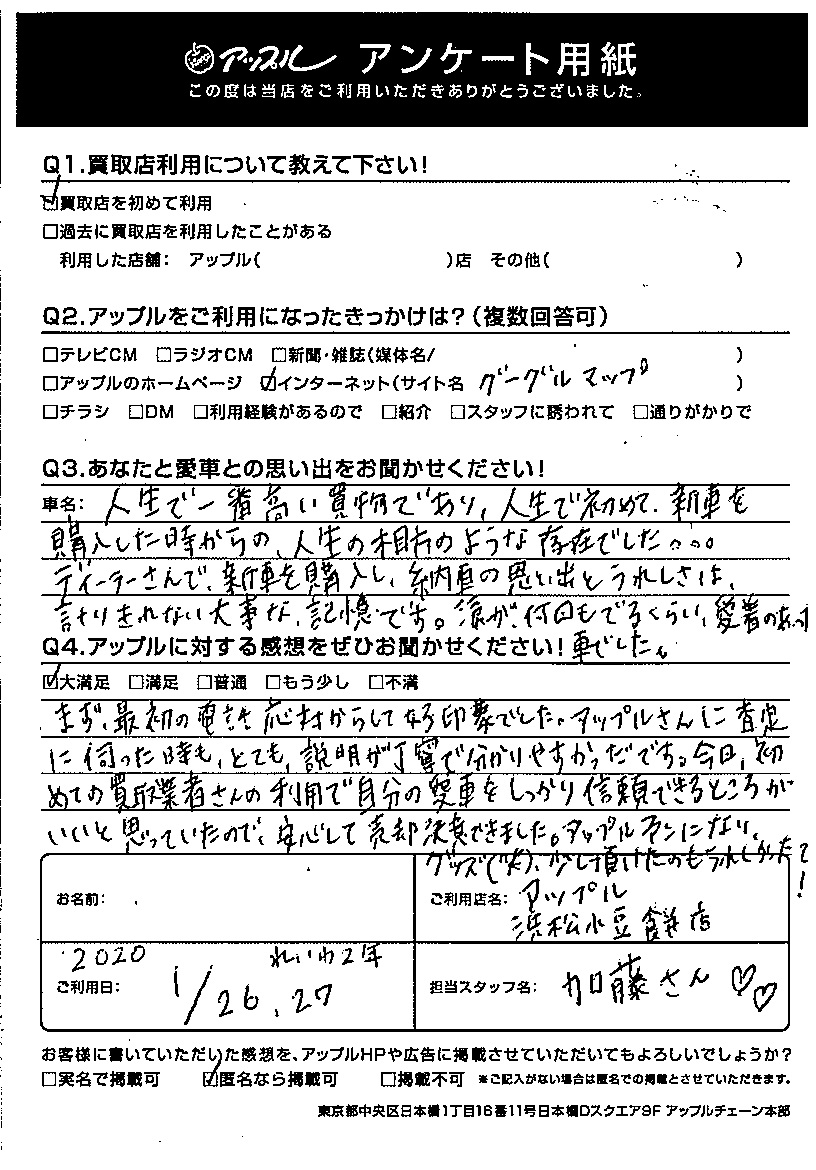 アップル アンケート用紙
この度は当店をご利用いただきありがとうございました。
Q1.買取店利用について教えて下さい!
☑買取店を初めて利用
□過去に買取店を利用したことがある
利用した店舗: アップル( )店 その他( )
Q2.アップルをご利用になったきっかけは?(複数回答可)
□テレビCM □ラジオCM □新聞・雑誌(媒体名/ )
□アップルのホームページ ☑インターネット(サイト名 グーグルマップ )
□チラシ □DM □利用経験があるので □紹介 □スタッフに誘われて □通りがかりで
Q3.あなたと愛車との思い出をお聞かせください!
車名: 人生で一番高い買物であり、人生で初めて、新車を
購入した時からの、人生の相方のような存在でした。。。
ディーラーさんで、新車を購入し、納車の思い出とうれしさは、
計りきれない大事な、記憶です。涙が、何回もでるくらい、愛着のあった
車でした。
Q4.アップルに対する感想をぜひお聞かせください!
☑大満足 □満足 □普通 □もう少し □不満
まず、最初の電話応対からして好印象でした。アップルさんに査定
に伺った時も、とても、説明が丁寧で分かりやすかっだです。今日、初
めての買取業者さんの利用で自分の愛車をしっかり信頼できるところが
いいと思っていたので、安心して売却決意できました。アップルファンになり、
グッズ(笑)、少し頂けたのもうれしかった?!
お名前:
ご利用店名: アップル
浜松小豆餅店
2020 れいわ2年
ご利用日: 1/26.27
担当スタッフ名: 加藤さん ♡♡
お客様に書いていただいた感想を、アップルHPや広告に掲載させていただいてもよろしいでしょうか?
□実名で掲載可 ☑匿名なら掲載可 □掲載不可 ※ご記入がない場合は匿名での掲載とさせていただきます。
東京都中央区日本橋1丁目16番11号日本橋Dスクエア9F アップルチェーン本部